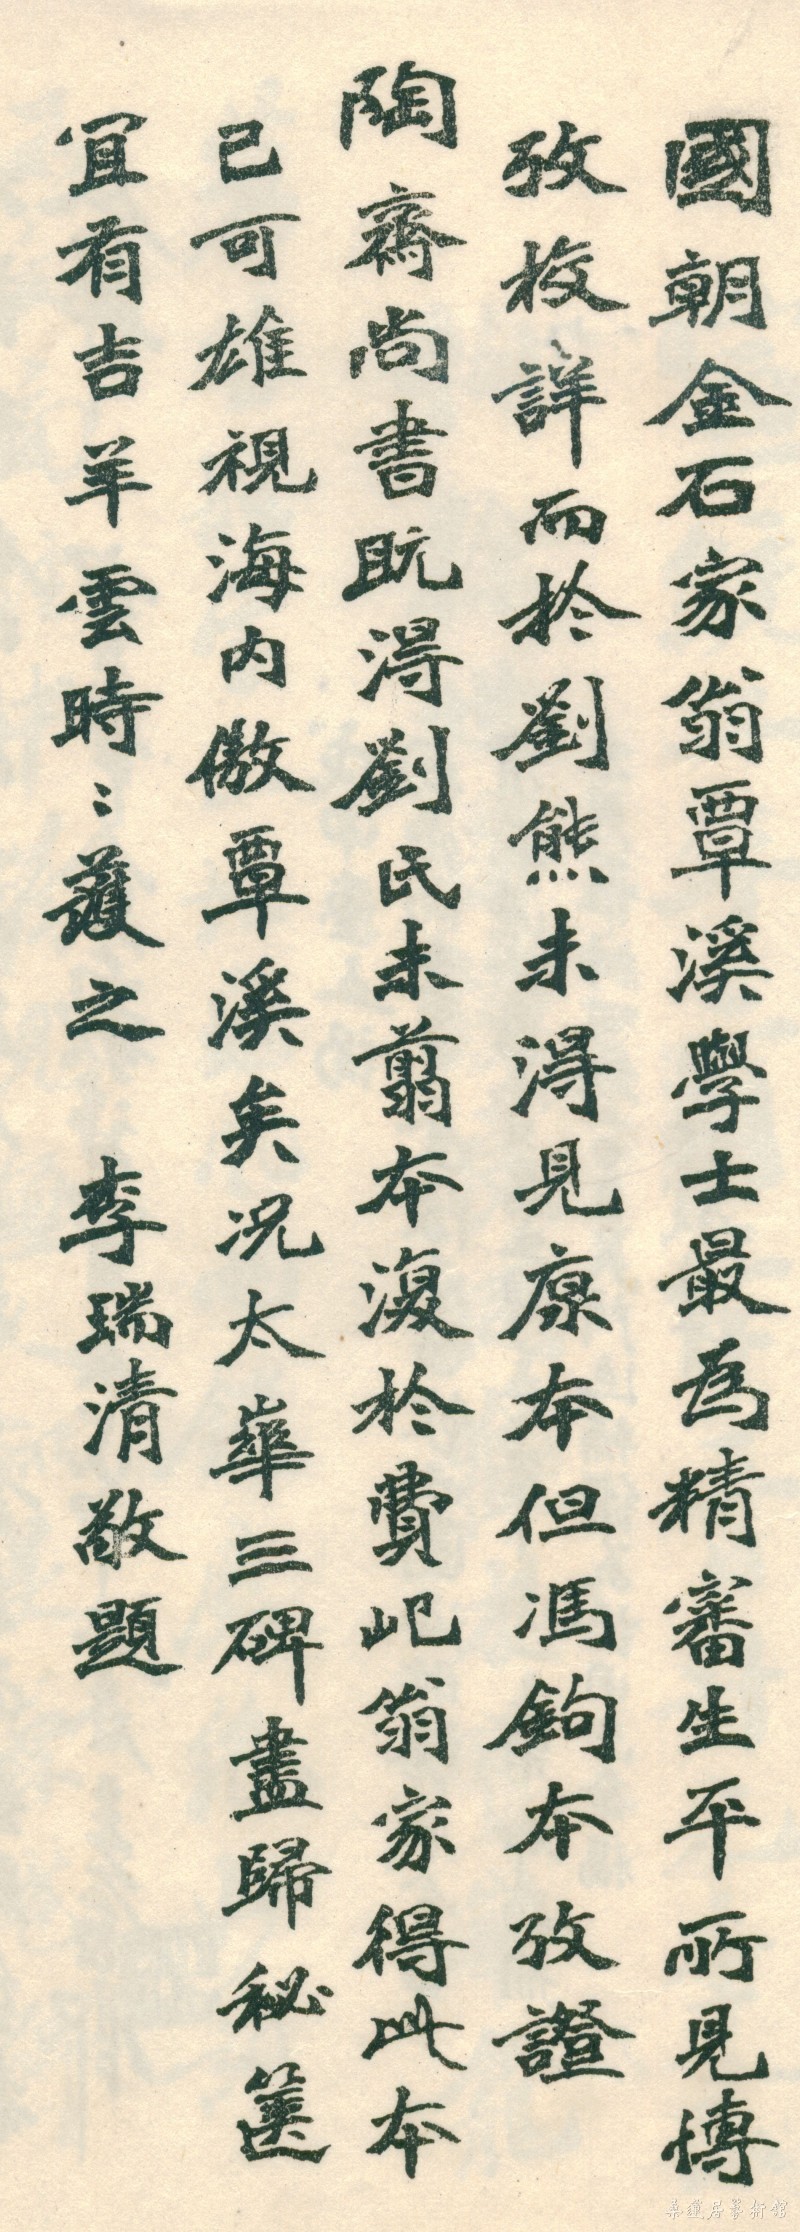 國朝金石家翁覃溪學士最為精審生平所見博
攷校詳而於劉熊未淂見原本但馮鉤本攷證
陶齋尚書既淂劉氏未翦本復於費屺翁家得此本
已可雄視海内傲覃溪矣況太華三碑盡歸秘篋
宜有吉羊雲時〻護之 李瑞清敬題
華蓮居藝術館